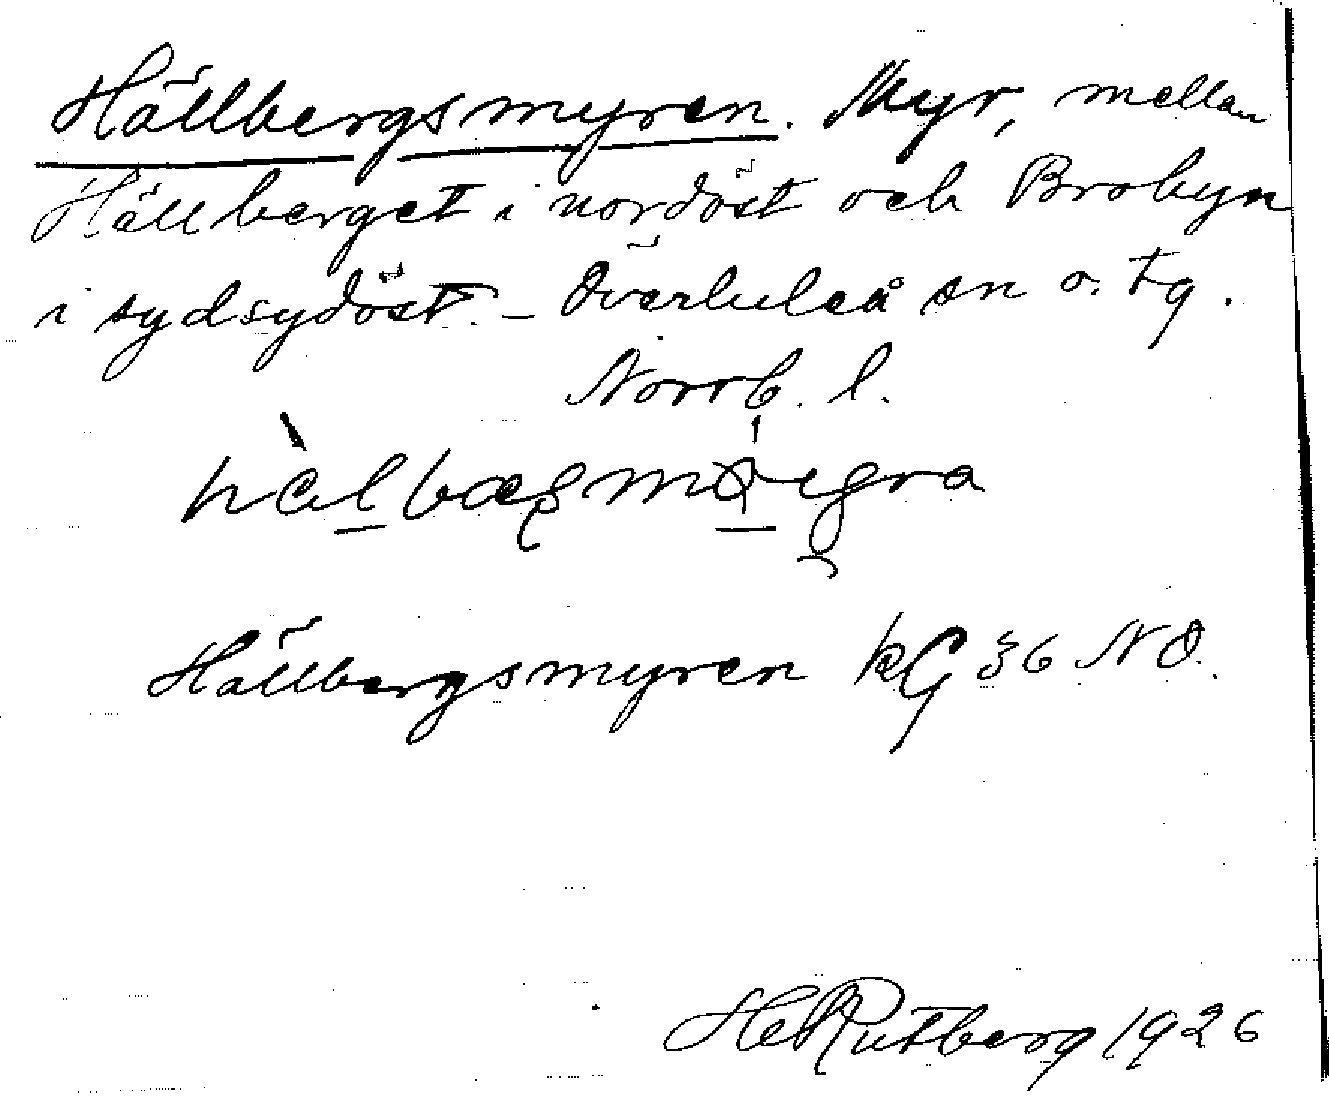 Hällbergsmyren. Myr, mellan
Hällberget i nordöst och Brobyn
i sydsydöst. – Överluleå sn o. tg.
Norrb. l.
Hällbergsmyren kG 36 NO.
H Rutberg 1926